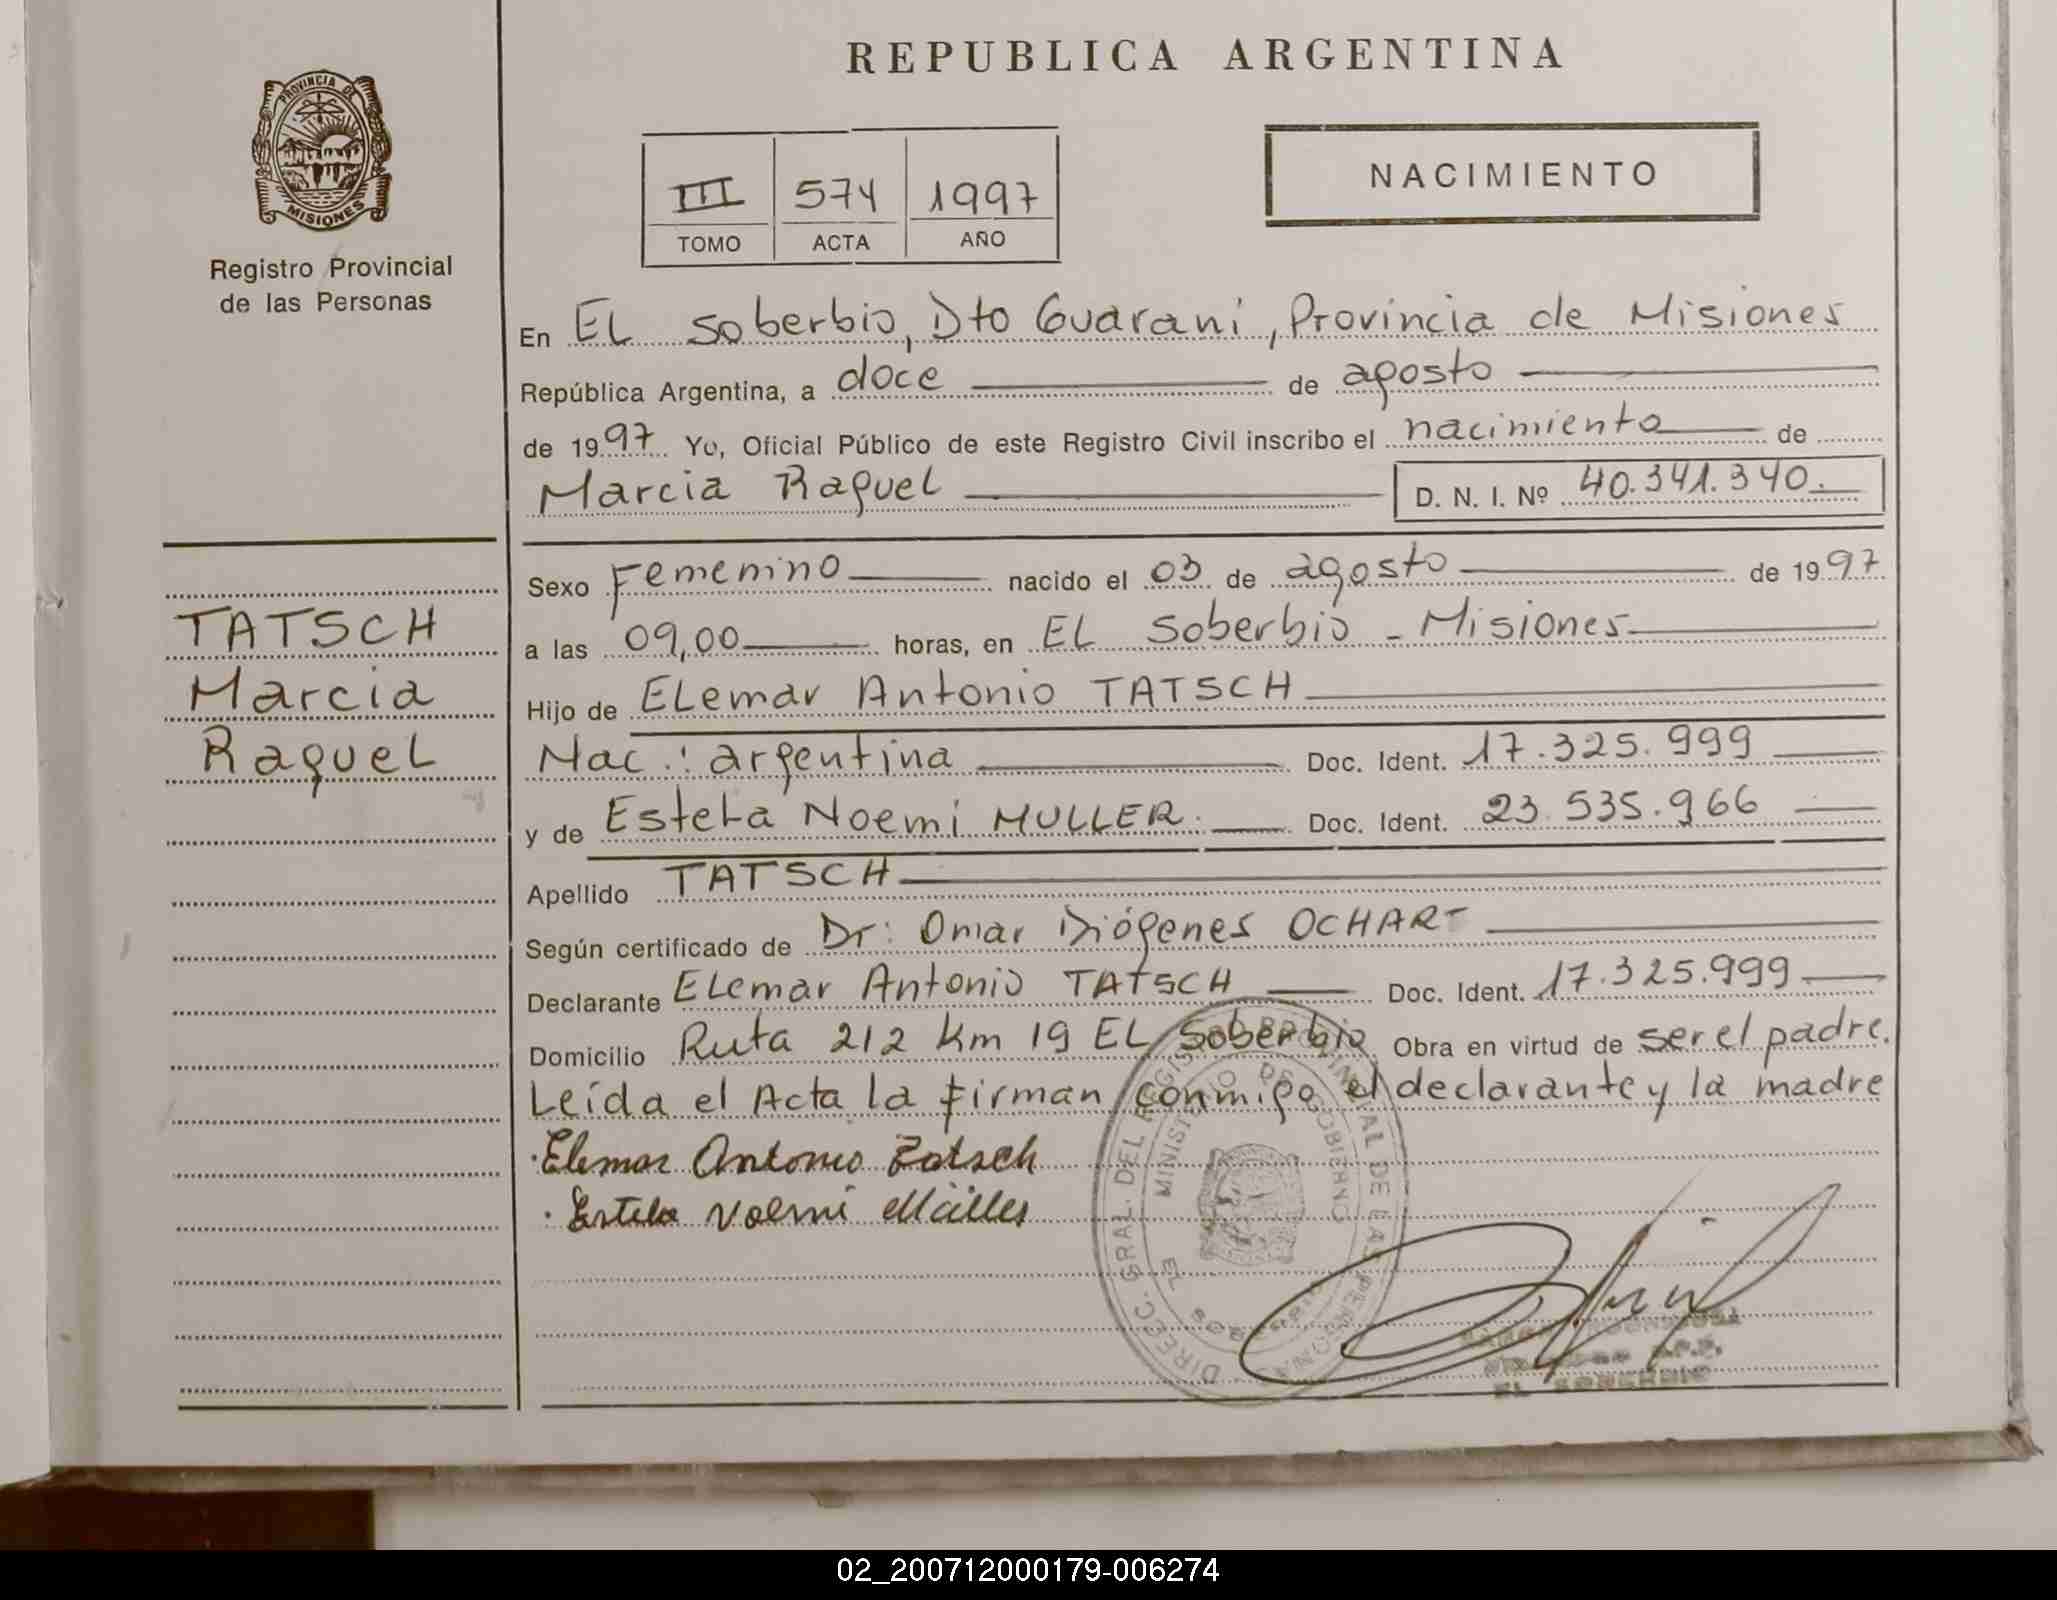 REPUBLICA ARGENTINA
PROVINCIA DE
MISIONES
Registro Provincial
de las Personas
III 574 1997
TOMO ACTA AÑO
NACIMIENTO
En EL Soberbio, Dto Guarani, Provincia de Misiones
República Argentina, a doce de agosto
de 1997 Yo, Oficial Público de este Registro Civil inscribo el nacimiento de
Marcia Raquel D. N. I. Nº 40.341.340.
Sexo Femenino nacido el 03 de agosto de 1997
TATSCH
Marcia
Raquel
a las 09,00 horas, en EL Soberbio - Misiones
Hijo de ELemar Antonio TATSCH
Nac.: argentina Doc. Ident. 17.325.999
y de EsteLa Noemi MULLER. Doc. Ident. 23.535.966
Apellido TATSCH
Según certificado de Dr: Omar Diógenes OCHART
Declarante ELemar Antonio TATSCH Doc. Ident. 17.325.999
Domicilio Ruta 212 Km 19 EL Soberbio Obra en virtud de ser el padre.
Leída el Acta la firman conmigo el declarante y la madre
Elemar Antonio Tatsch
Estela Noemi Müller
DIREC. GRAL. DEL REGISTRO PROVINCIAL DE LAS PERSONAS
MINISTERIO DE GOBIERNO
EL SOBERBIO
EL SOBERBIO
02_200712000179-006274